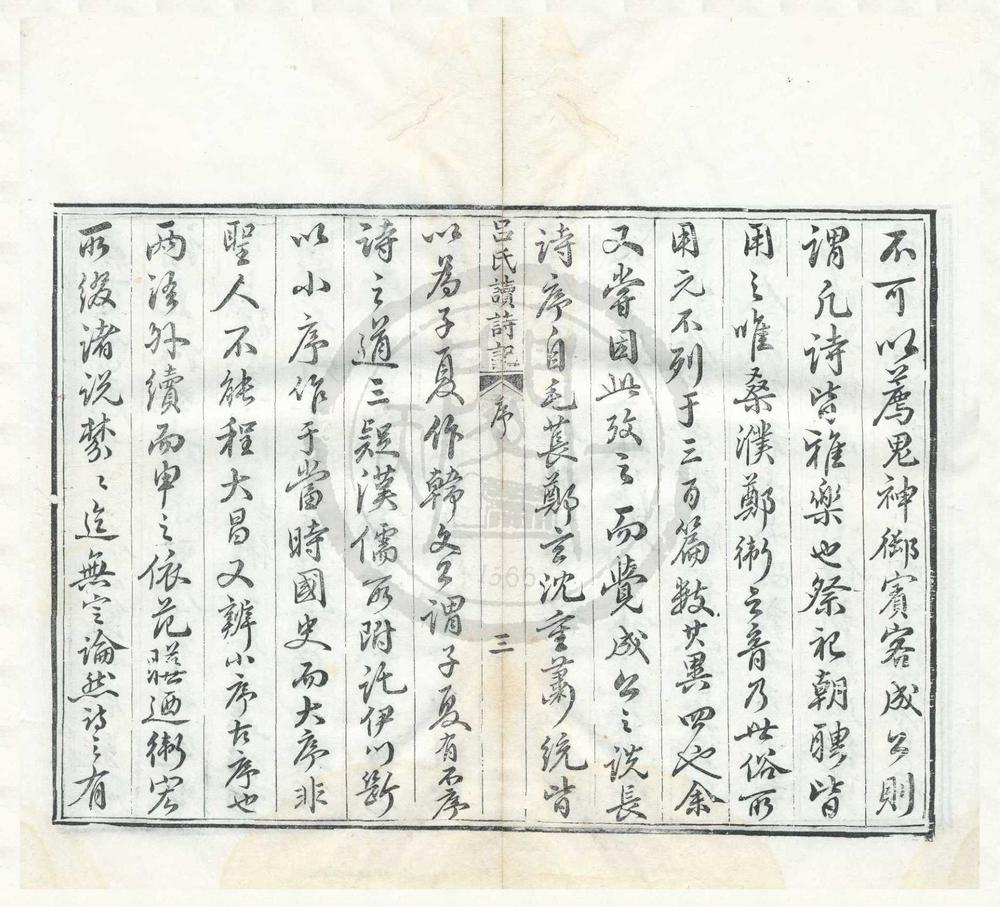 不可以薦鬼神御賓客成公則
謂凡詩皆雅樂也祭祀朝聘皆
用之唯桑濮鄭衛之音乃世俗所
用元不列于三百篇數其異四也余
又嘗因此攷之而覺成公之說長
詩序自毛萇鄭玄沈重蕭統皆
呂氏讀詩記
序
三
以為子夏作韓文公謂子夏有不序
詩之道三疑漢儒所附託伊川斷
以小序作于當時國史而大序非
聖人不能程大昌又辨小序古序也
兩語外續而申之依范曄迺衛宏
所綴諸說棼〻迄無定論然詩之有